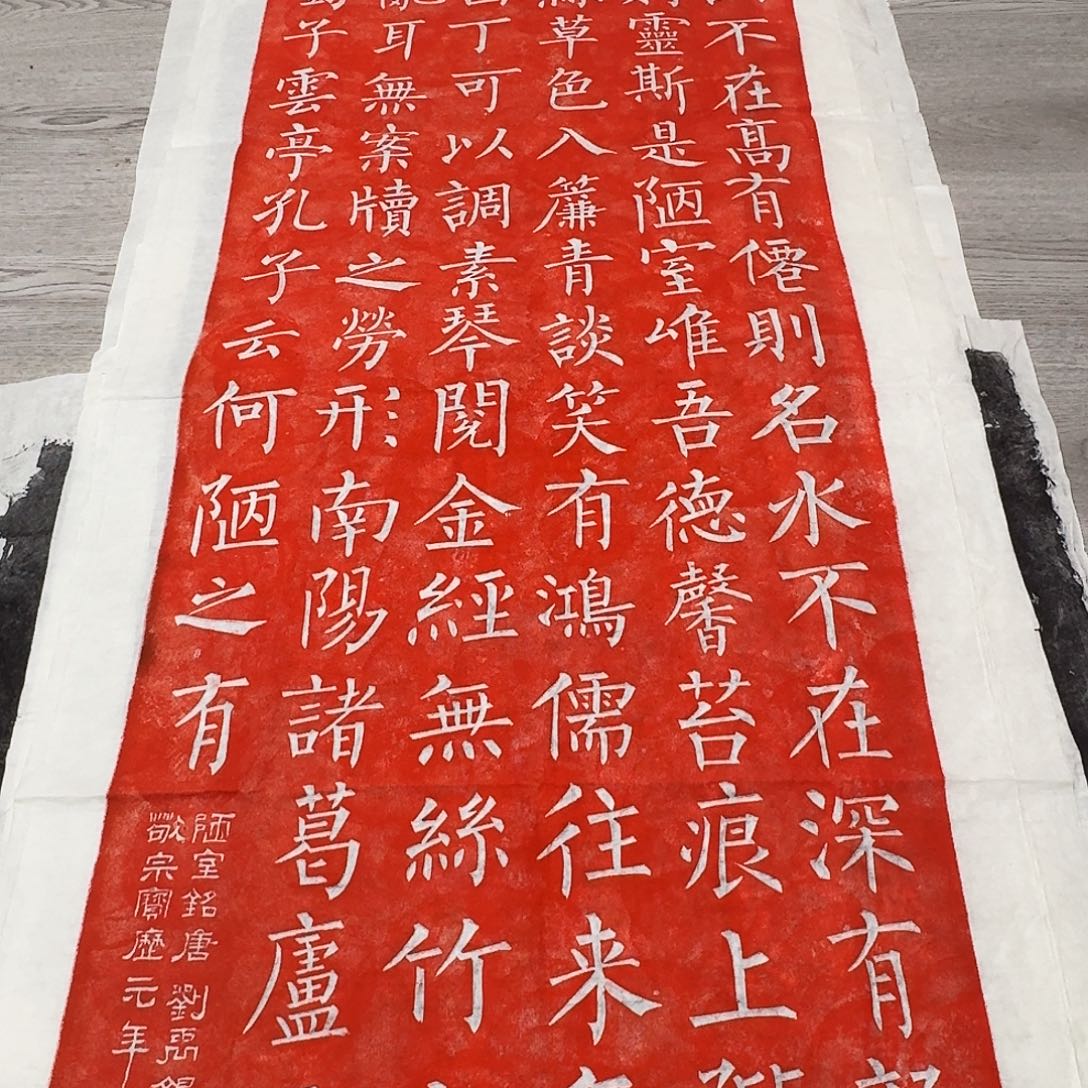 不在髙有僊則名水不在深有
靈斯是陋室唯吾德馨苔痕上階
草色入簾青談笑有鴻儒往来
丁可以調素琴閱金經無絲竹
亂耳無案牘之勞形南陽諸葛廬
子雲亭孔子云何陋之有
陋室銘唐劉禹錫
敬宗寶歷元年